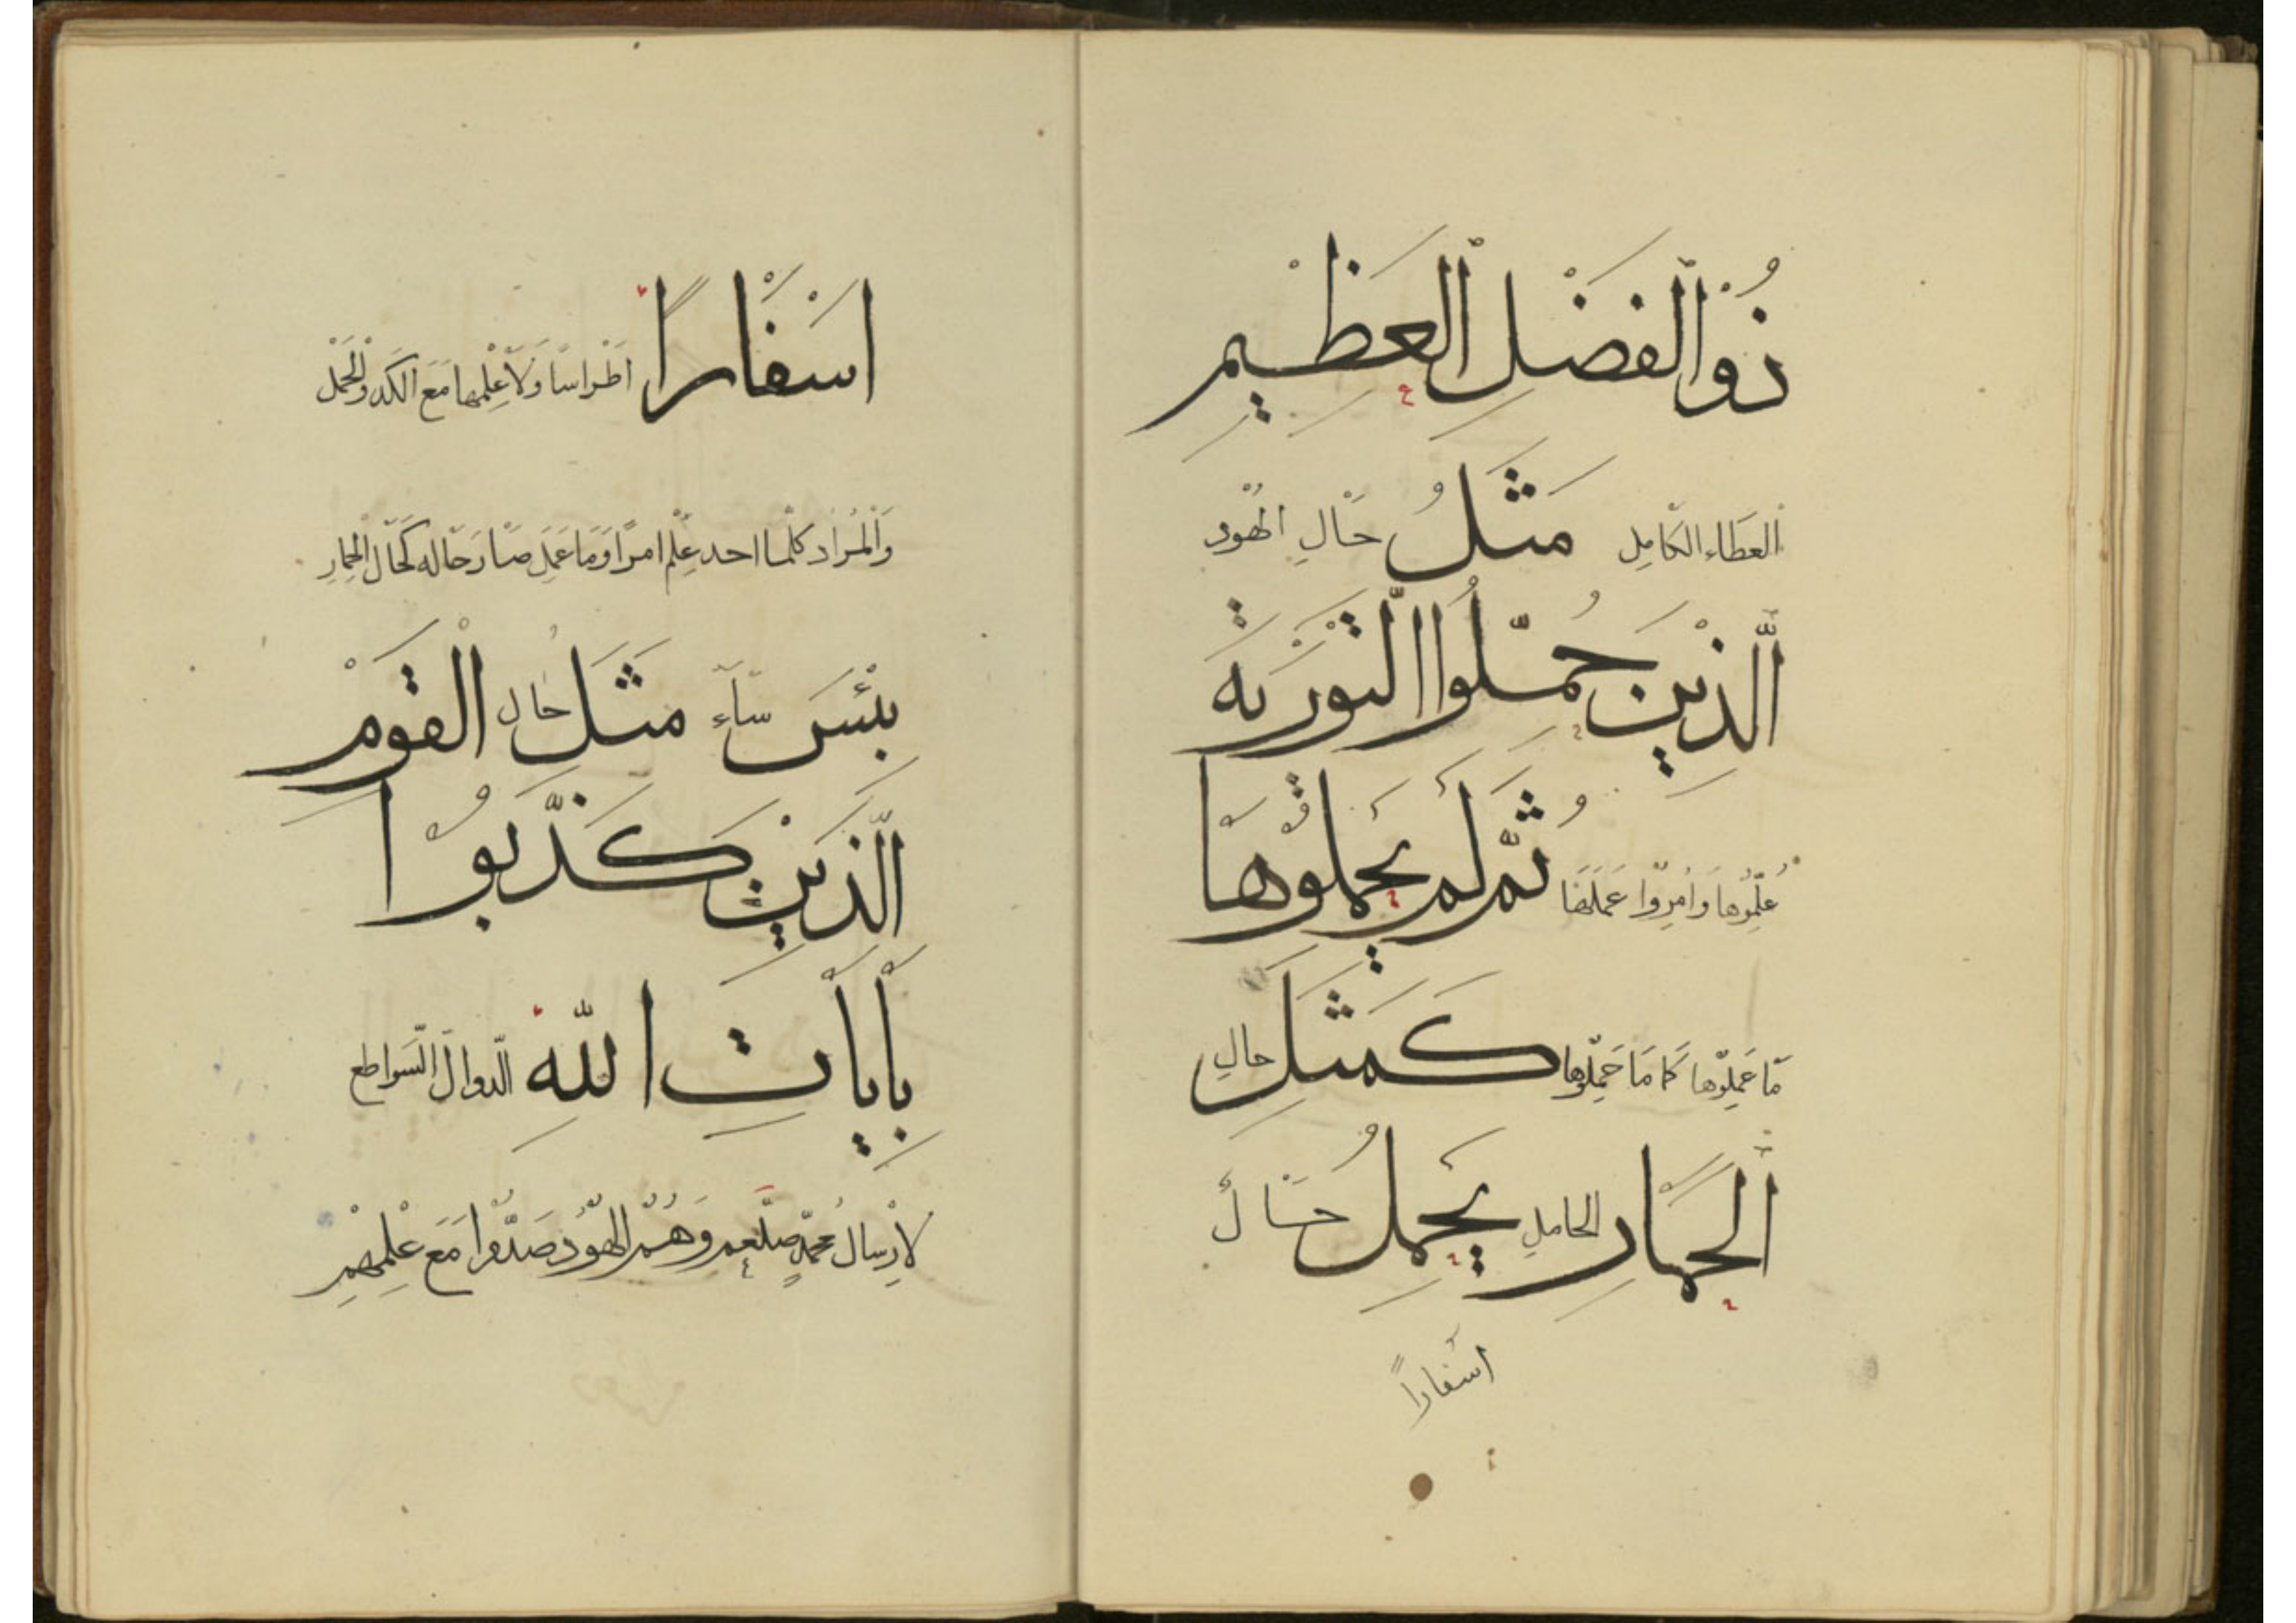 ذُوْالْفَضْلِ الْعَظِيْمِ
العَطَاءِ الكَامِلِ مَثَلُ حَالِ الهُوْدِ
الَّذِيْنَ حُمِّلُوا التَّوْرٰىةَ
عُلِّمُوْهَا وَاُمِرُوْا عَمَلَهَا ثُمَّ لَمْ يَحْمِلُوْهَا
مَا عَمِلُوْهَا كَمَا مَا حَمِلُوْهَا كَمَثَلِ حَالِ
الْحِمَارِ الحَامِلِ يَحْمِلُ حَالٌ
اَسْفَارًا
اَسْفَارًا اَطْرَاسًا وَلَا عِلْمَهَا مَعَ الكَدِّ وَالْحَمْلِ
وَالْمُرَادُ كُلَّمَا احد عَلِمَ امرًا وَمَا عَمِلَ صَارَ حَاله كَحَالِ الْحِمَارِ
بِئْسَ سَاءَ مَثَلُ حَالُ الْقَوْمِ
الَّذِيْنَ كَذَّبُوْا
بِاٰيَاتِ اللّٰهِ الدَّوَالِّ السَّوَاطِعِ
لِاِرْسَالِ مُحَمَّدٍ صلعم وَهُمُ الْهُوْدُ صَدُّوْا مَعَ عِلْمِهِمْ